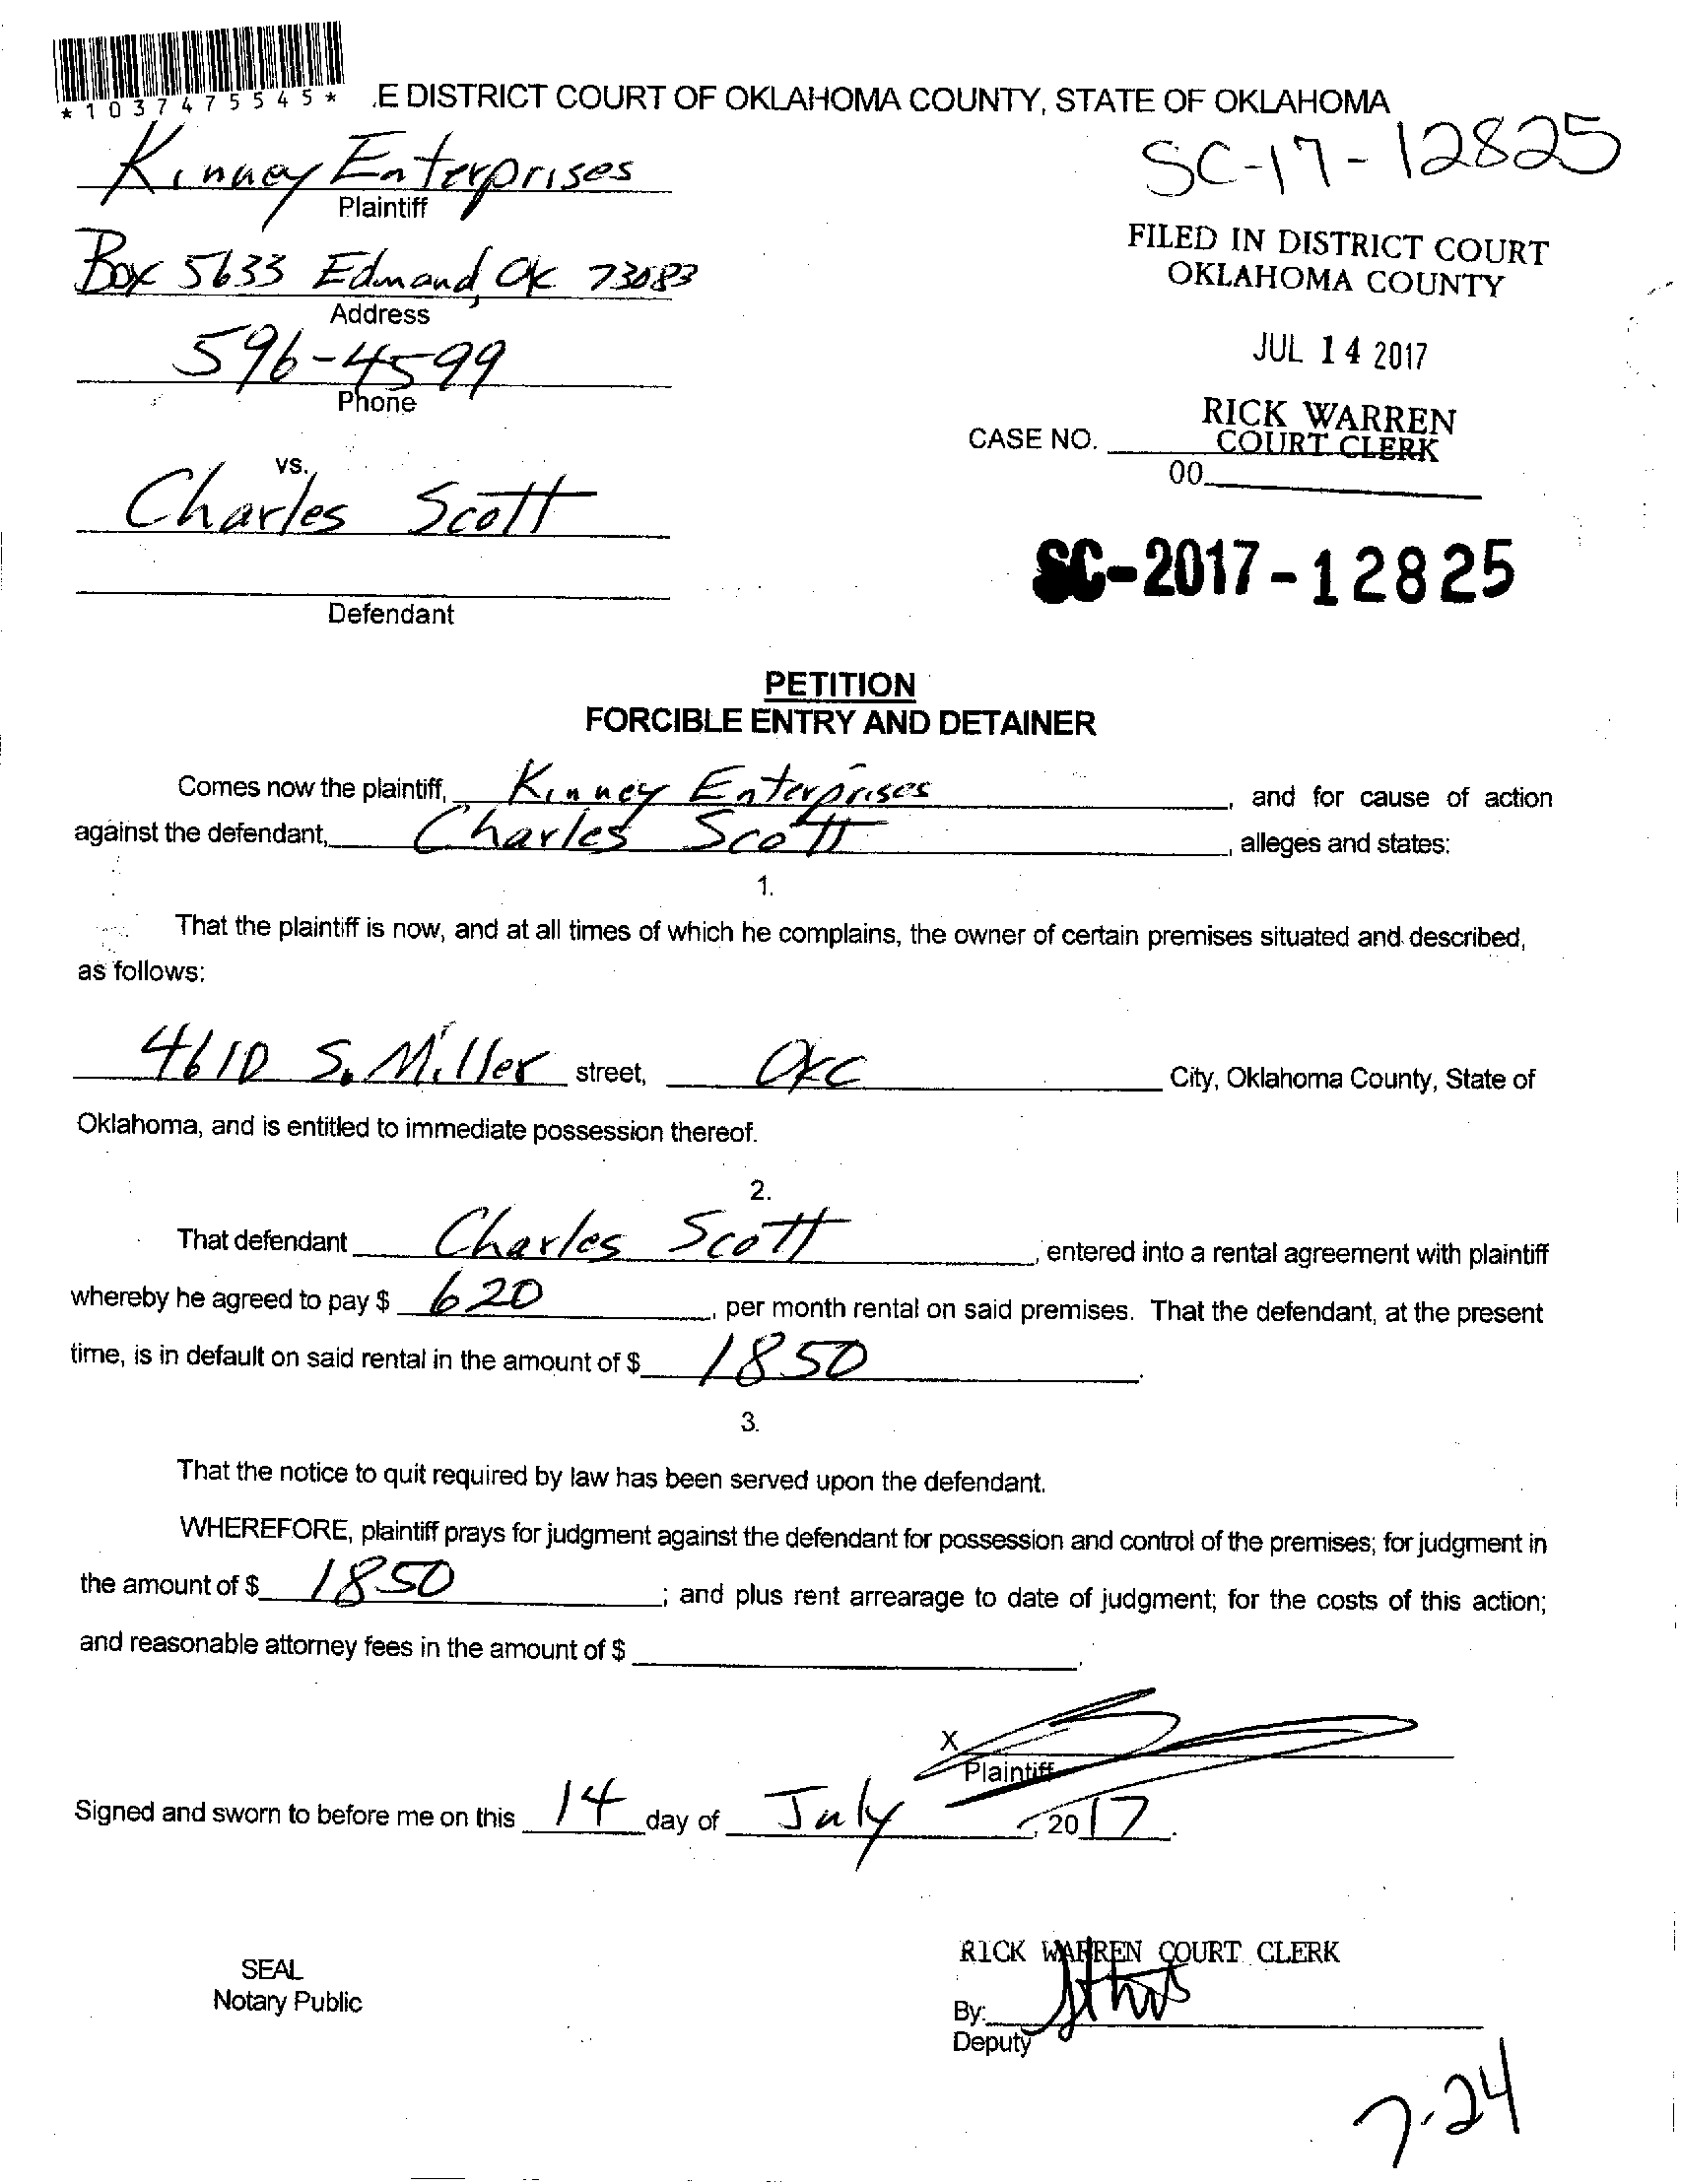 *1037475545*
.E DISTRICT COURT OF OKLAHOMA COUNTY, STATE OF OKLAHOMA
Kinney Enterprises
Plaintiff
SC-17-12825
Box 5633 Edmond, Ok 73083
Address
FILED IN DISTRICT COURT
OKLAHOMA COUNTY
596-4599
Phone
JUL 14 2017
RICK WARREN
CASE NO. COURT CLERK
00
vs.
Charles Scott
SC-2017-12825
Defendant
PETITION
FORCIBLE ENTRY AND DETAINER
Comes now the plaintiff, Kinney Enterprises, and for cause of action
against the defendant, Charles Scott, alleges and states:
1.
That the plaintiff is now, and at all times of which he complains, the owner of certain premises situated and described,
as follows:
4610 S. Miller street, OKC City, Oklahoma County, State of
Oklahoma, and is entitled to immediate possession thereof.
2.
That defendant Charles Scott, entered into a rental agreement with plaintiff
whereby he agreed to pay $ 620, per month rental on said premises. That the defendant, at the present
time, is in default on said rental in the amount of $ 1850.
3.
That the notice to quit required by law has been served upon the defendant.
WHEREFORE, plaintiff prays for judgment against the defendant for possession and control of the premises; for judgment in
the amount of $ 1850; and plus rent arrearage to date of judgment; for the costs of this action;
and reasonable attorney fees in the amount of $ .
X
Plaintiff
Signed and sworn to before me on this 14 day of July, 2017.
RICK WARREN COURT CLERK
SEAL
Notary Public
By:
Deputy
7-24